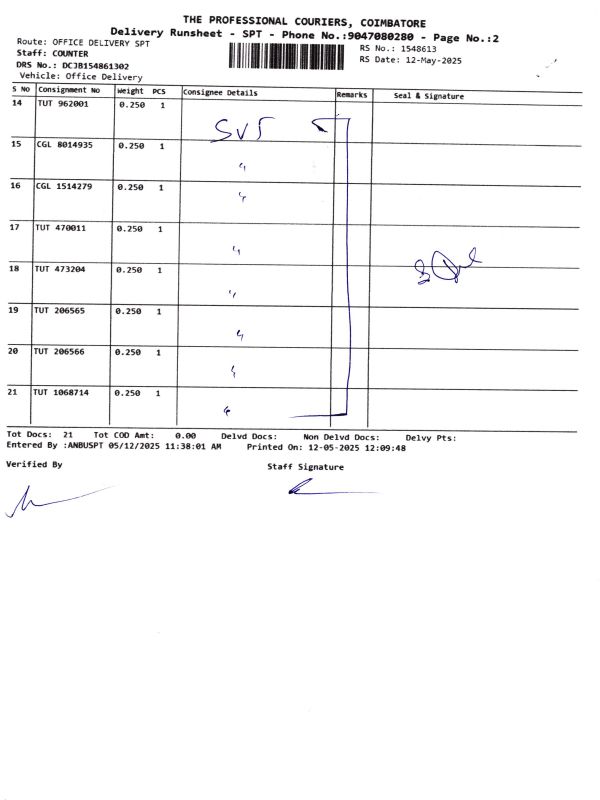 THE PROFESSIONAL COURIERS, COIMBATORE
Delivery Runsheet - SPT - Phone No.:9047080280 - Page No.:2
Route: OFFICE DELIVERY SPT
Staff: COUNTER
DRS No.: DCJB154861302
Vehicle: Office Delivery
RS No.: 1548613
RS Date: 12-May-2025
S No Consignment No Weight PCS Consignee Details Remarks Seal & Signature
14 TUT 962001 0.250 1
SVS
15 CGL 8014935 0.250 1
"
16 CGL 1514279 0.250 1
"
17 TUT 470011 0.250 1
"
18 TUT 473204 0.250 1
"
19 TUT 206565 0.250 1
"
20 TUT 206566 0.250 1
"
21 TUT 1068714 0.250 1
"
Tot Docs: 21 Tot COD Amt: 0.00 Delvd Docs: Non Delvd Docs: Delvy Pts:
Entered By :ANBUSPT 05/12/2025 11:38:01 AM Printed On: 12-05-2025 12:09:48
Verified By Staff Signature